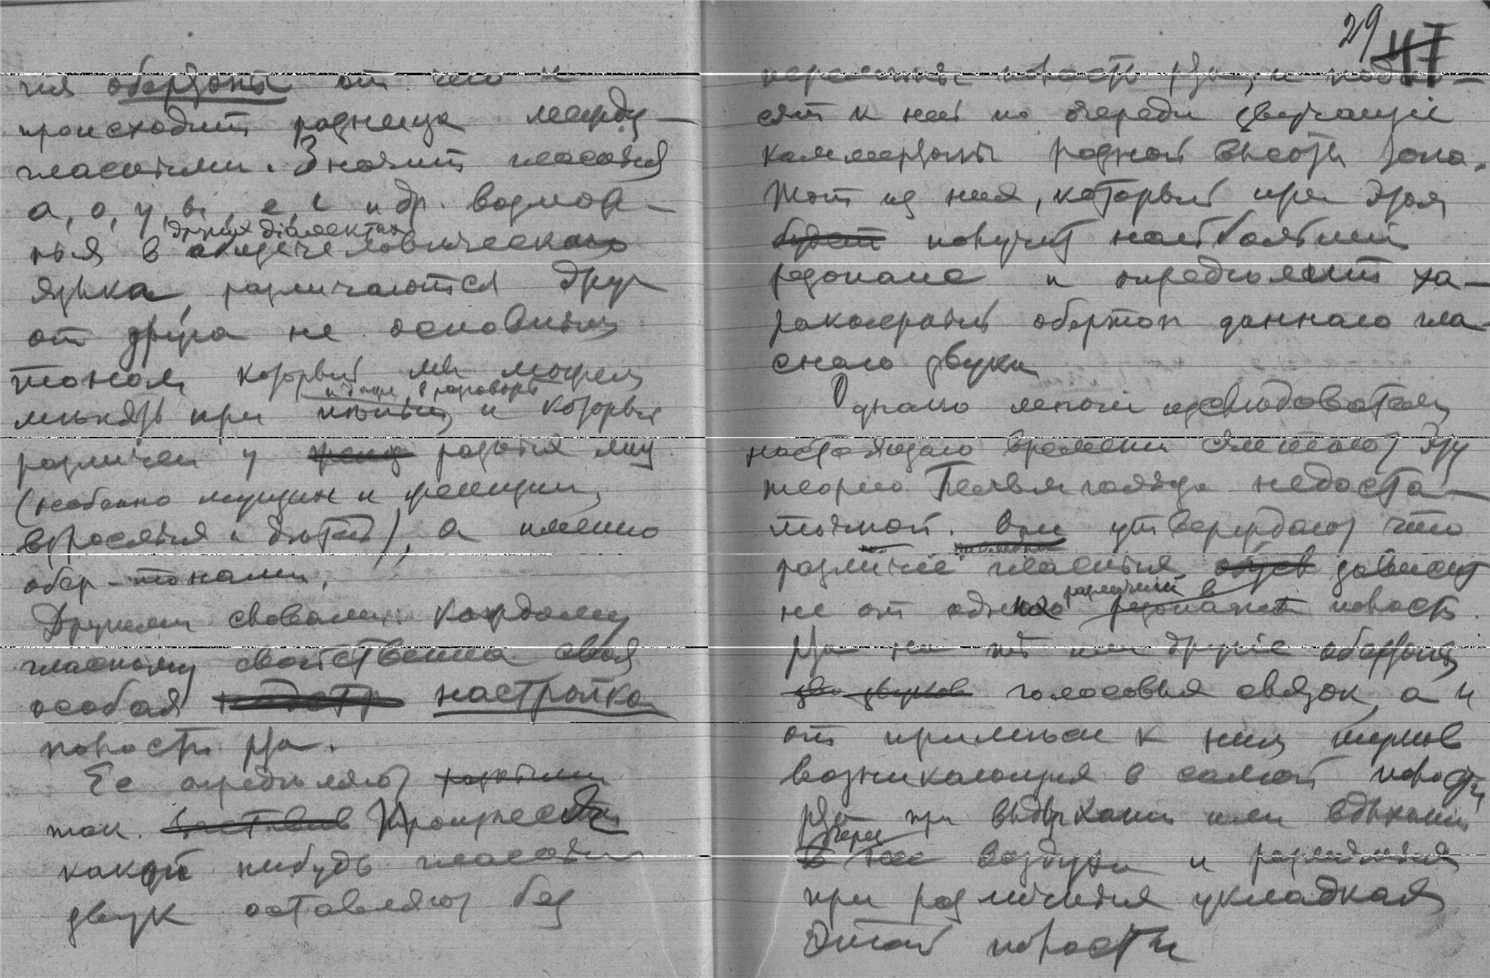 гія обертоны от чего и
происходит разница между
гласными. Значит гласныя
а, о, у, ы, е, i и др. возмож-
ныя в других діалектах человѣческаго
языка, различаются друг
от друга не основным
тоном, который мы можем
мѣнять при пѣніи, и даже в разговорѣ и который
различен у разных лиц
(особенно мущин и женщин,
взрослых и дѣтей), а именно
обер-тонами.
Другими словами каждому
гласному свойственна своя
особая настройка
полости рта.
Ее опредѣляют
так. Произнеся
какой нибудь гласный
звук оставляют без
29 47
полость рта и подно-
сят к ней по очереди звучащіе
каммертоны разной высоты тона.
Тот из них, который при этом
получит наибольшій
резонанс и определяет ха-
рактерный обертон даннаго гла-
снаго звука
Однако многіе изслѣдователи
настоящаго времени считают эту
теорію Гельмгольца недоста-
точной. Они утверждают что
различіе гласных зависит
не от одного различій в полости
рта на тѣ или другіе обертоны
голосовых связок, а и
от примѣси к ним шумов
возникающих в самой полости
рта при выдыханіи или вдыханіи
через нее воздуха и различных
при различных укладках
этой полости